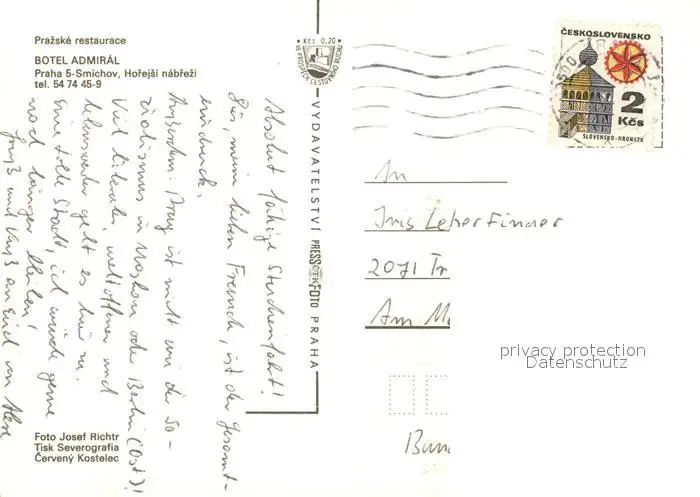 Pražské restaurace
BOTEL ADMIRÁL
Praha 5-Smíchov, Hořejší nábřeží
tel. 54 74 45-9
Kčs 0,20
VE PROSPĚCH CESTOVNÍHO RUCHU
ČESKOSLOVENSKO
2
Kčs
SLOVENSKO-HRONSEK
VYDAVATELSTVÍ PRESSFOTO PRAHA
ČTK
Absolut Studienfahrt!
Für, meine lieben Freunde, ist der Gesamt-
eindruck.
Außerdem: Prag ist nicht wie der So-
zialismus in Moskau oder Berlin (Ost)!
Viel liberaler, weltoffener und
lebenswerter geht es hier zu.
Eine tolle Stadt, ich würde gerne
noch länger bleiben!
Gruß und Kuß an Euch von
An
Iris Leherfinger
2071 Tr
Am M
Bun
privacy protection
Datenschutz
Foto Josef Richtr
Tisk Severografia
Červený Kostelec